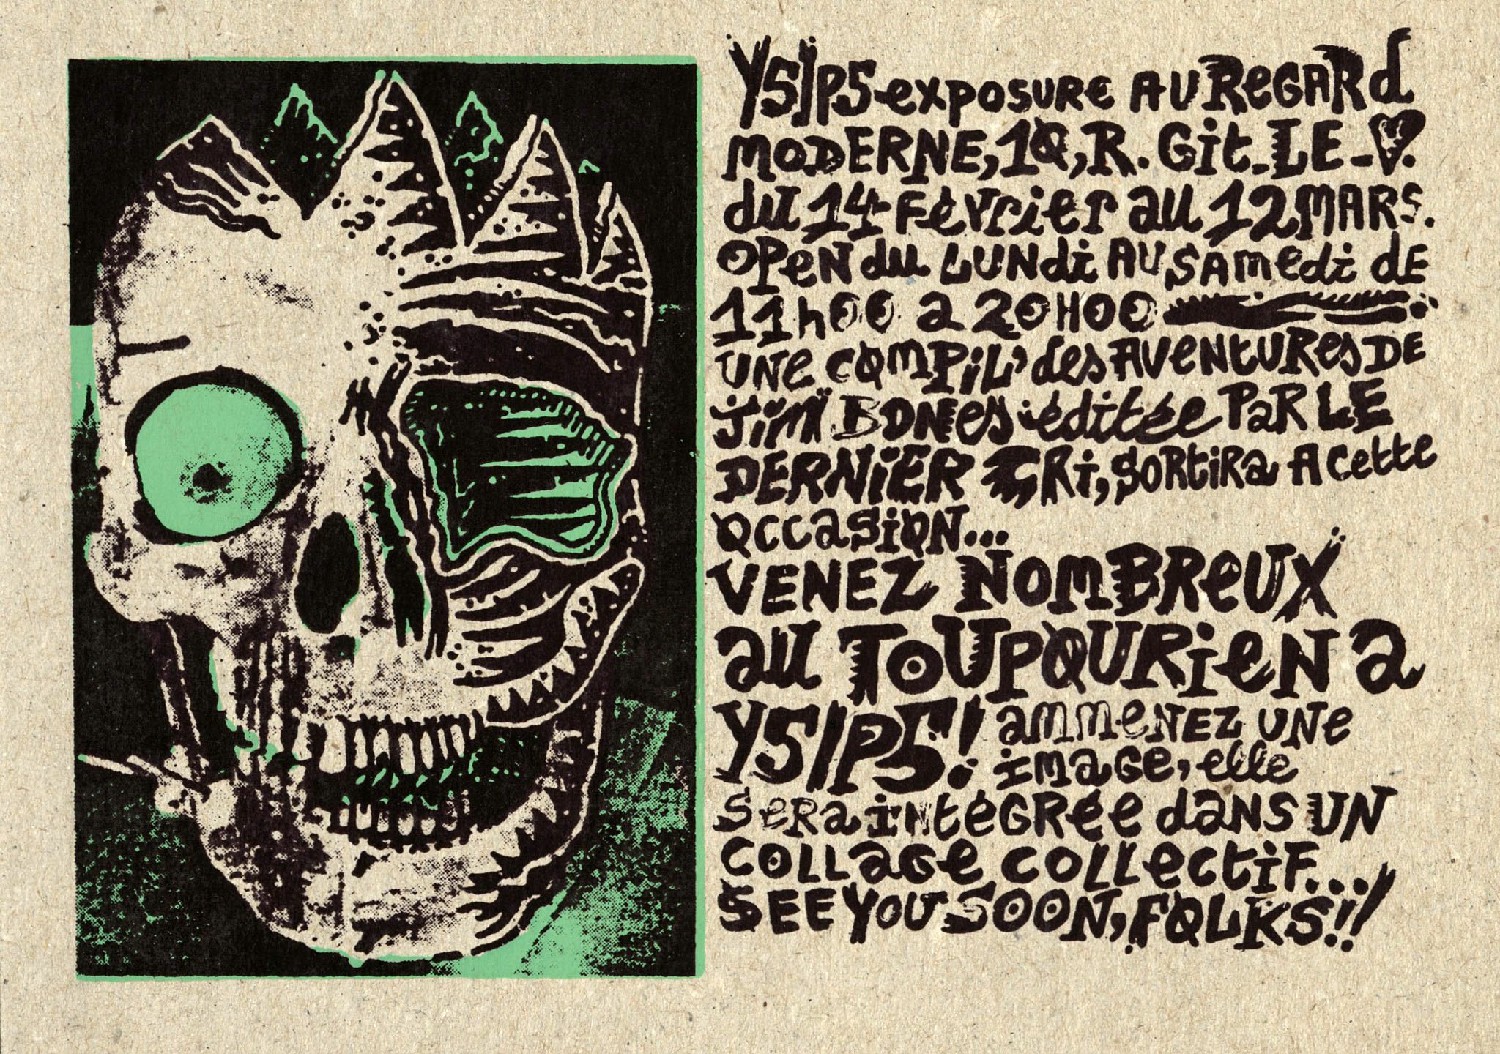 Y5/P5-exposure AU ReGARd
MODERNE, 10, R. Git. LE-♥.
du 14 Février au 12 MARS.
OPeN du LUNdi AU SAmedi dE
11h00 a 20H00
UNe COMPiL' des AVeNtUReS DE
Jim BONes éditée PaR LE
DERNiER CRi, SORtiRa A Cette
OCCaSiON...
VENEZ NOMBReUX
au TOUPOURIeN a
Y5/P5! ammeNEZ UNe
image, elle
SeRa iNtéGRée daNS UN
COLLaGe COLLeCtiF...
SEE YOU SOON, FOLKS!!/